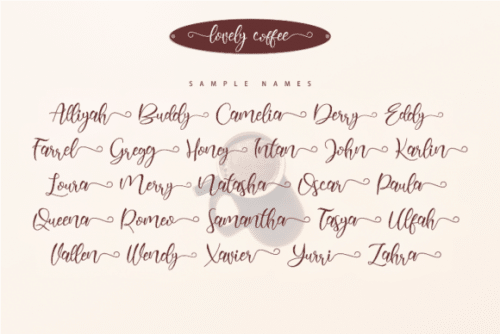 lovely coffee
SAMPLE NAMES
Alliyah Buddy Camelia Derry Eddy
Farrel Gregg Honey Intan John Karlin
Loura Merry Natasha Oscar Paula
Queena Romeo Samantha Tasya Ulfah
Vallen Wendy Xavier Yurri Zahra